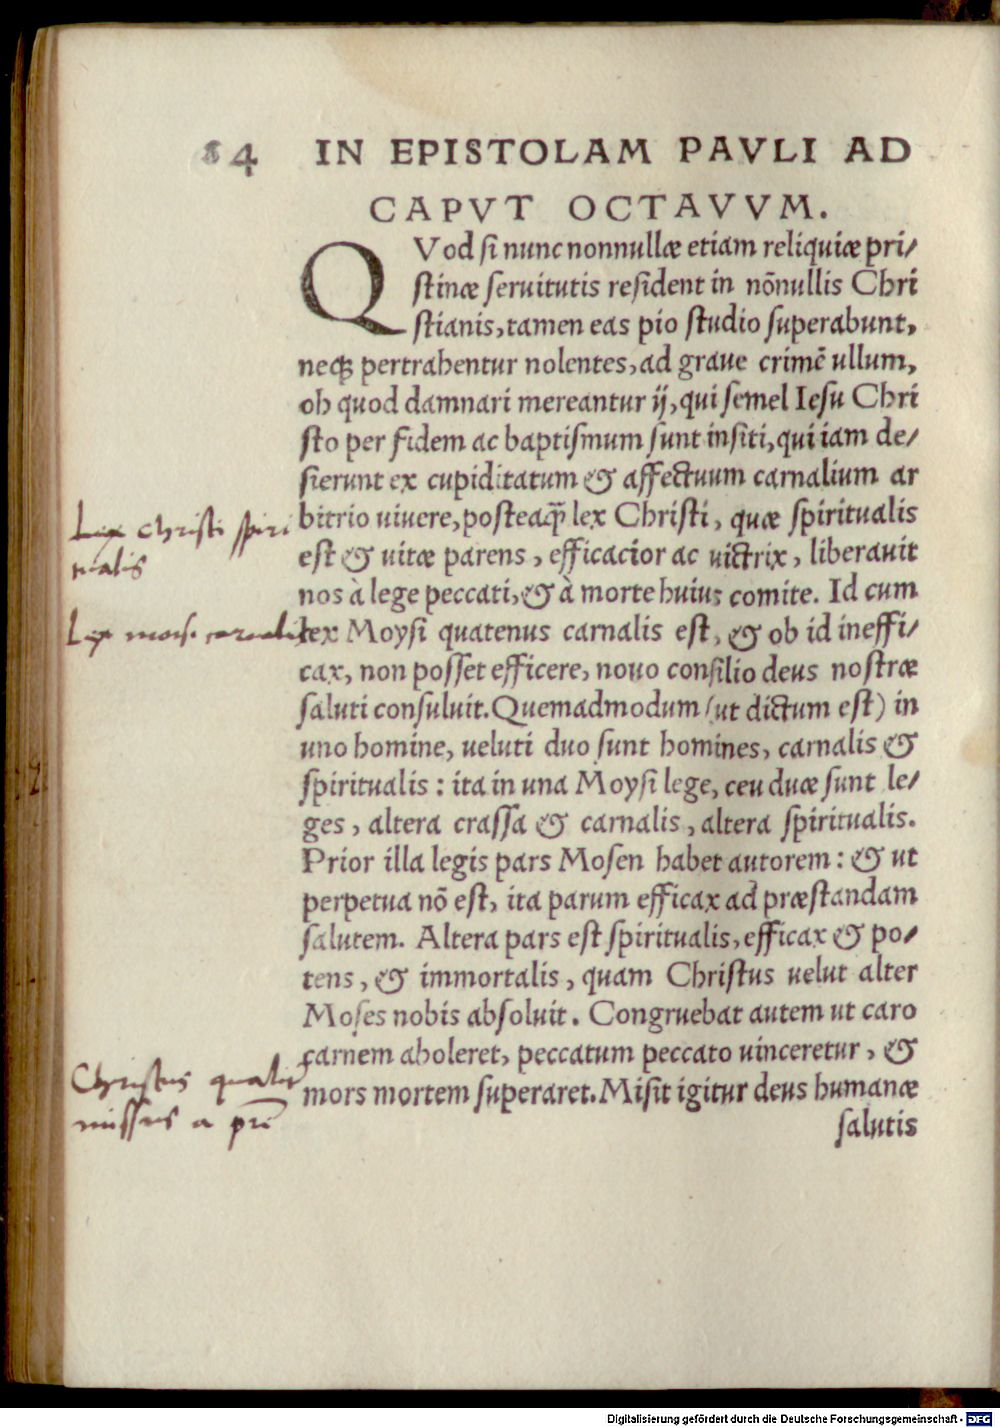 84 IN EPISTOLAM PAVLI AD
CAPVT OCTAVVM.
QVod si nunc nonnullæ etiam reliquiæ pri/
stinæ seruitutis resident in nõnullis Chri
stianis, tamen eas pio studio superabunt,
neqꝫ pertrahentur nolentes, ad graue crimẽ ullum,
ob quod damnari mereantur ij, qui semel Iesu Chri
sto per fidem ac baptismum sunt insiti, qui iam de/
sierunt ex cupiditatum & affectuum carnalium ar
bitrio uiuere, posteaq̃ lex Christi, quæ spiritualis
est & uitæ parens, efficacior ac uictrix, liberauit
nos à lege peccati, & à morte huius comite. Id cum
lex Moysi quatenus carnalis est, & ob id ineffi/
cax, non posset efficere, nouo consilio deus nostræ
saluti consuluit. Quemadmodum (ut dictum est) in
uno homine, ueluti duo sunt homines, carnalis &
spiritualis: ita in una Moysi lege, ceu duæ sunt le/
ges, altera crassa & carnalis, altera spiritualis.
Prior illa legis pars Mosen habet autorem: & ut
perpetua nõ est, ita parum efficax ad præstandam
salutem. Altera pars est spiritualis, efficax & po/
tens, & immortalis, quam Christus uelut alter
Moses nobis absoluit. Congruebat autem ut caro
carnem aboleret, peccatum peccato uinceretur, &
mors mortem superaret. Misit igitur deus humanæ
salutis
Lex Christi spiri
tualis
Lex moisi carnalis
Christus qualiter
missus a pr̃e
Digitalisierung gefördert durch die Deutsche Forschungsgemeinschaft - DFG